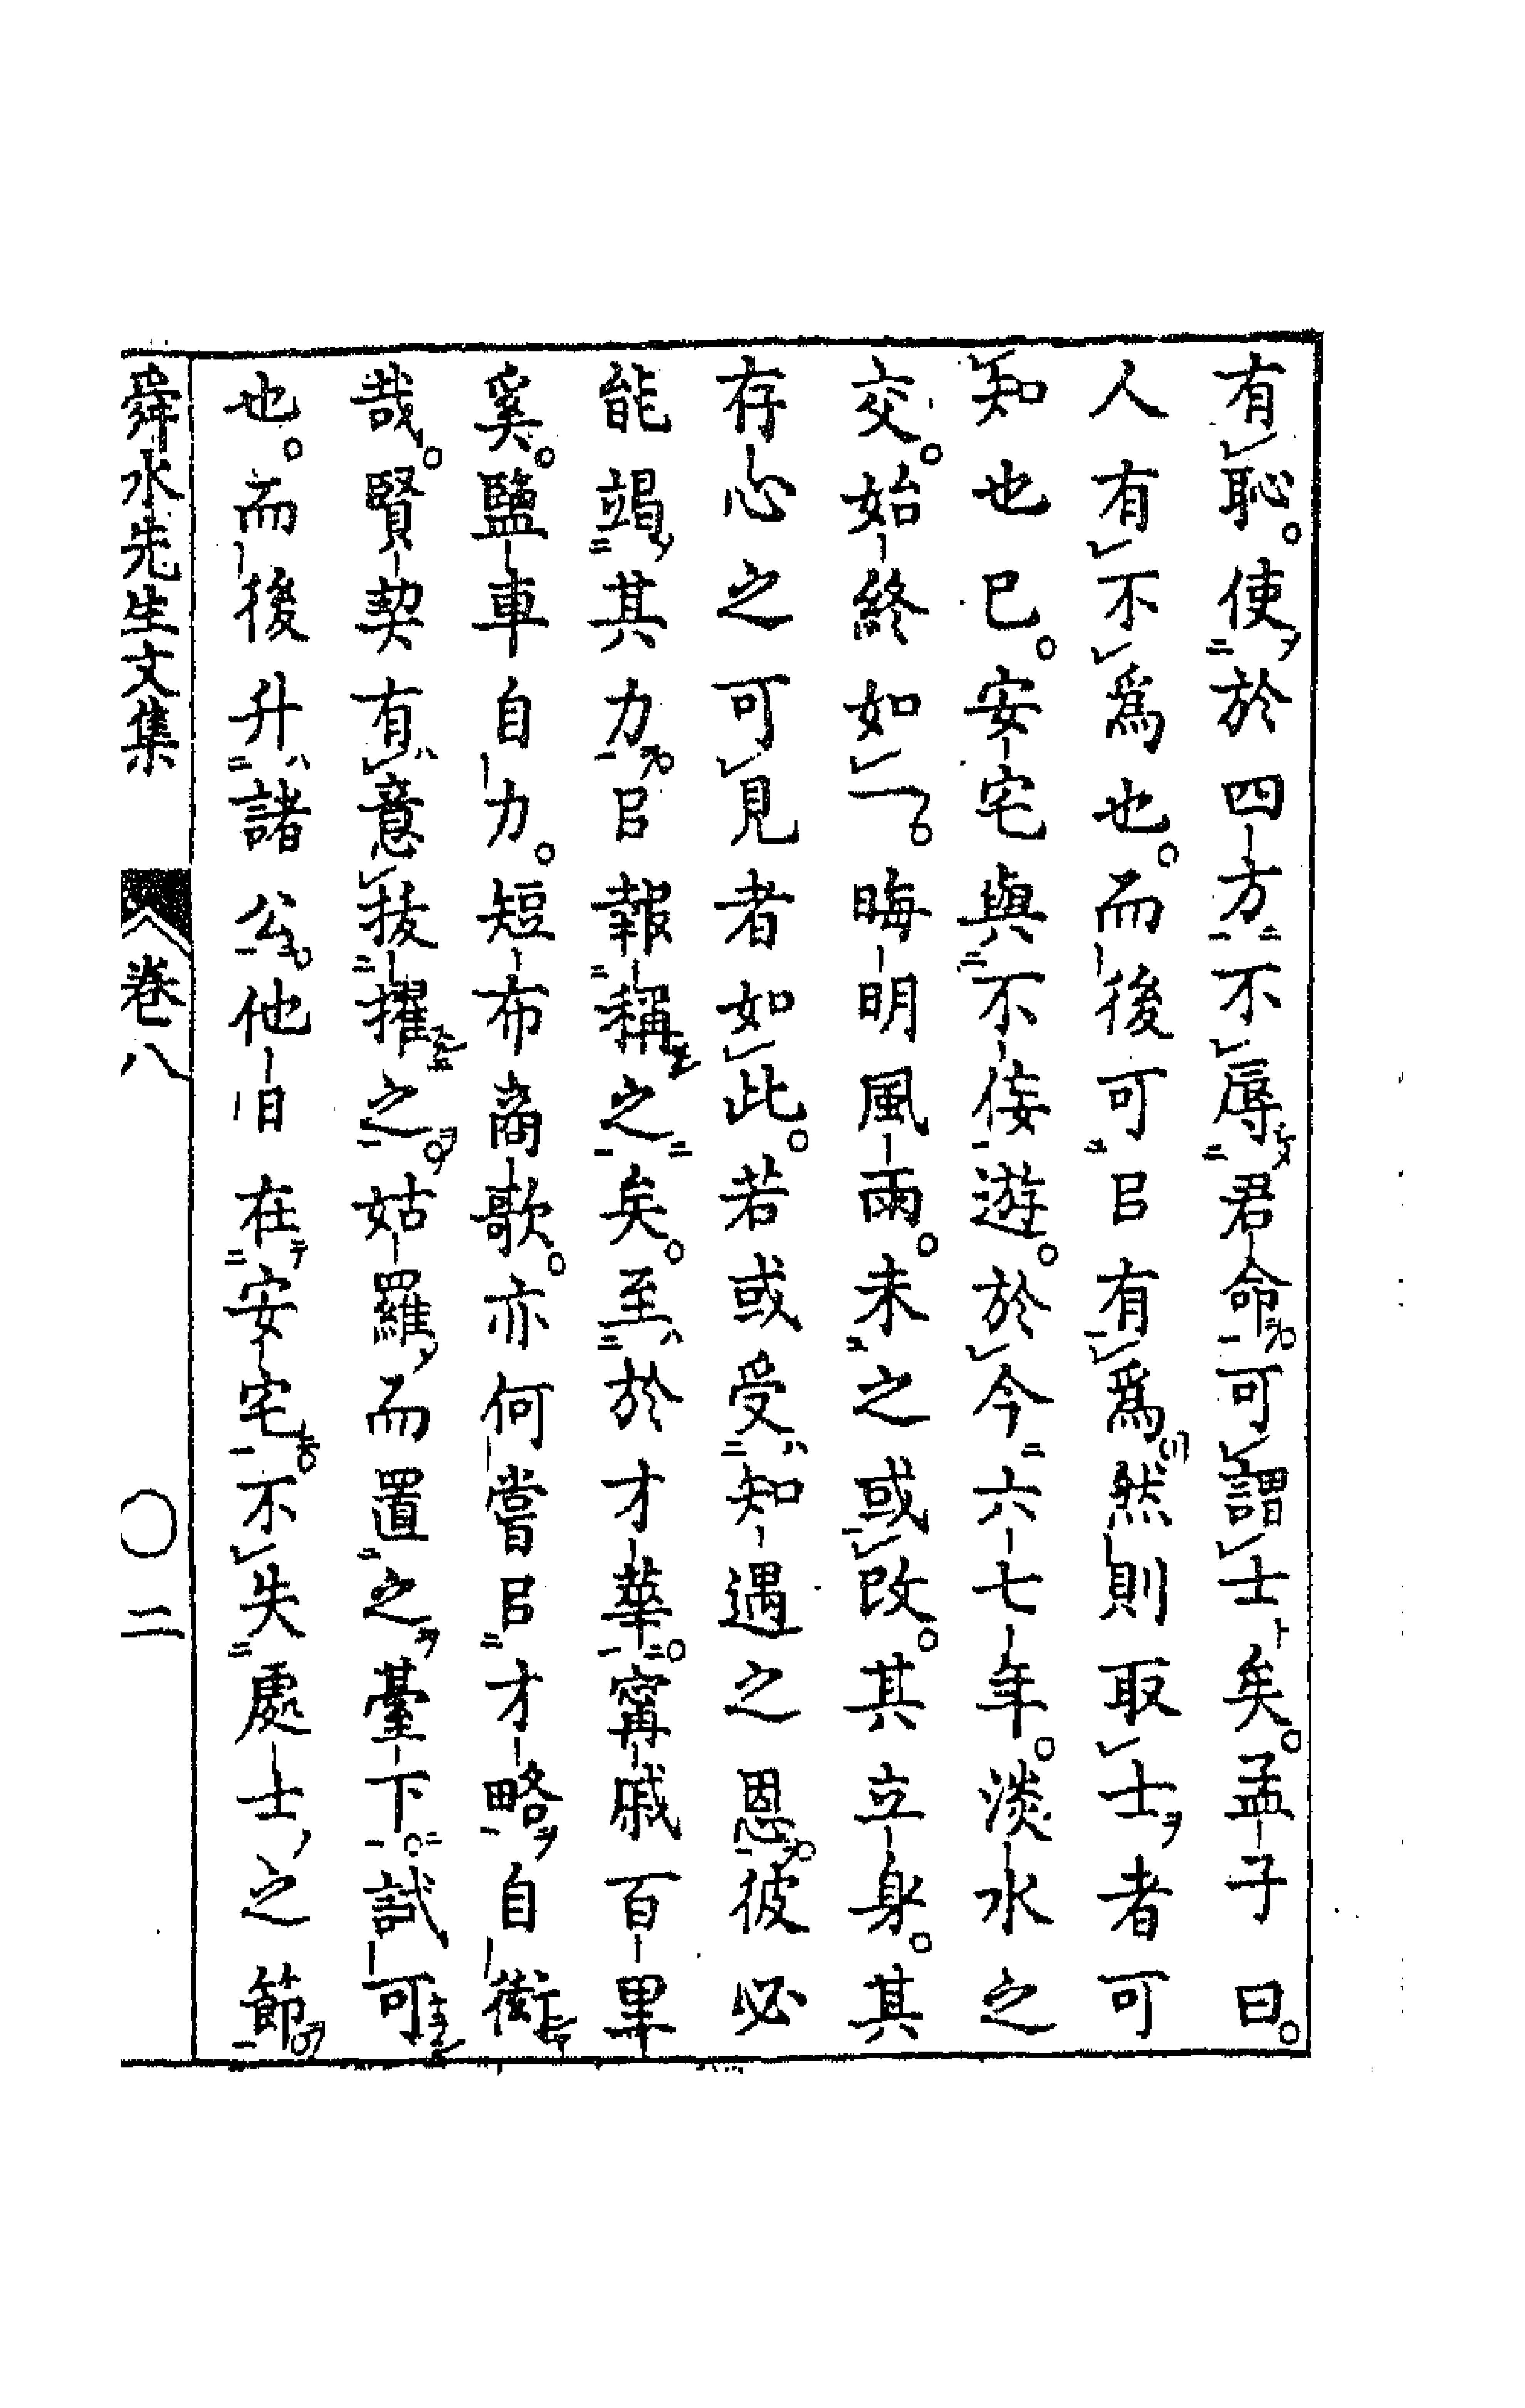 有恥。使於四方不辱君命。可謂士矣。孟子曰。
人有不爲也。而後可㠯有爲然則取士者可
知也已。安宅與不佞遊。於今六七年。淡水之
交。始終如一。晦明風雨。未之或改。其立身。其
存心之可見者如此。若或受知遇之恩。彼必
能竭其力。㠯報稱之矣。至於才華。甯戚百里
奚。鹽車自力。短布商歌。亦何嘗㠯才略自衒
哉。賢契有意拔擢之。姑羅而置之臺下。試可
也。而後升諸公。他日在安宅不失處士之節
舜水先生文集 卷八 〇二